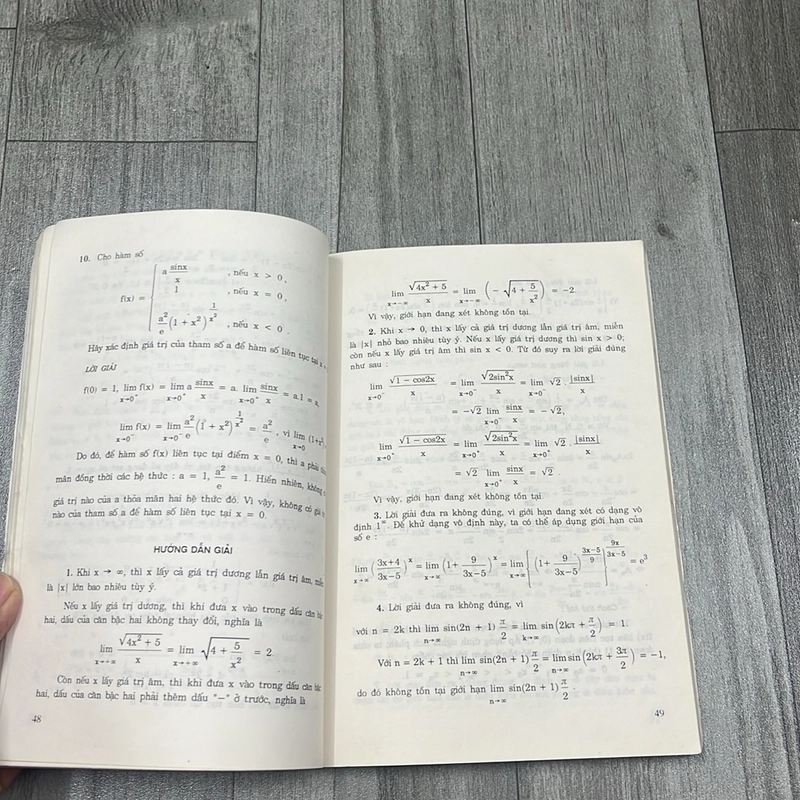 10. Cho hàm số
f(x) = { a sinx/x , nếu x > 0,
1 , nếu x = 0,
a²/e (1 + x²)^(1/x²) , nếu x < 0.
Hãy xác định giá trị của tham số a để hàm số liên tục tại x
LỜI GIẢI
f(0) = 1, lim_{x→0⁺} f(x) = lim_{x→0⁺} a sinx/x = a. lim_{x→0⁺} sinx/x = a.1 = a,
lim_{x→0⁻} f(x) = lim_{x→0⁻} a²/e (1 + x²)^(1/x²) = a²/e, vì lim_{x→0}
Do đó, để hàm số f(x) liên tục tại điểm x = 0, thì a phải
mãn đồng thời các hệ thức : a = 1, a²/e = 1. Hiển nhiên, không
giá trị nào của a thỏa mãn hai hệ thức đó. Vì vậy, không có giá
nào của tham số a để hàm số liên tục tại x = 0.
HƯỚNG DẪN GIẢI
1. Khi x → ∞, thì x lấy cả giá trị dương lẫn giá trị âm,
là |x| lớn bao nhiêu tùy ý.
Nếu x lấy giá trị dương, thì khi đưa x vào trong dấu căn bậc
hai, dấu của căn bậc hai không thay đổi, nghĩa là
lim_{x→+∞} √(4x² + 5)/x = lim_{x→+∞} √(4 + 5/x²) = 2.
Còn nếu x lấy giá trị âm, thì khi đưa x vào trong dấu căn bậc
hai, dấu của căn bậc hai phải thêm dấu "−" ở trước, nghĩa là
48
lim_{x→−∞} √(4x² + 5)/x = lim_{x→−∞} (− √(4 + 5/x²)) = −2.
Vì vậy, giới hạn đang xét không tồn tại.
2. Khi x → 0, thì x lấy cả giá trị dương lẫn giá trị âm, miễn
là |x| nhỏ bao nhiêu tùy ý. Nếu x lấy giá trị dương thì sin x > 0;
còn nếu x lấy giá trị âm thì sin x < 0. Từ đó suy ra lời giải đúng
như sau :
lim_{x→0⁻} √(1 − cos2x)/x = lim_{x→0⁻} √(2sin²x)/x = lim_{x→0⁻} √2 . |sinx|/x
= −√2 lim_{x→0⁻} sinx/x = −√2,
lim_{x→0⁺} √(1 − cos2x)/x = lim_{x→0⁺} √(2sin²x)/x = lim_{x→0⁺} √2 . |sinx|/x
= √2 lim_{x→0⁺} sinx/x = √2.
Vì vậy, giới hạn đang xét không tồn tại.
3. Lời giải đưa ra không đúng, vì giới hạn đang xét có dạng vô
định 1^∞. Để khử dạng vô định này, ta có thể áp dụng giới hạn của
số e :
lim_{x→∞} ((3x+4)/(3x−5))^x = lim_{x→∞} (1+ 9/(3x−5))^x = lim_{x→∞} [(1+ 9/(3x−5))^((3x−5)/9)]^(9x/(3x−5)) = e³
4. Lời giải đưa ra không đúng, vì
với n = 2k thì lim_{n→∞} sin(2n + 1) π/2 = lim_{k→∞} sin(2kπ + π/2) = 1.
Với n = 2k + 1 thì lim_{n→∞} sin(2n + 1) π/2 = lim_{n→∞} sin(2kπ + 3π/2) = −1,
do đó không tồn tại giới hạn lim_{n→∞} sin(2n + 1) π/2.
49